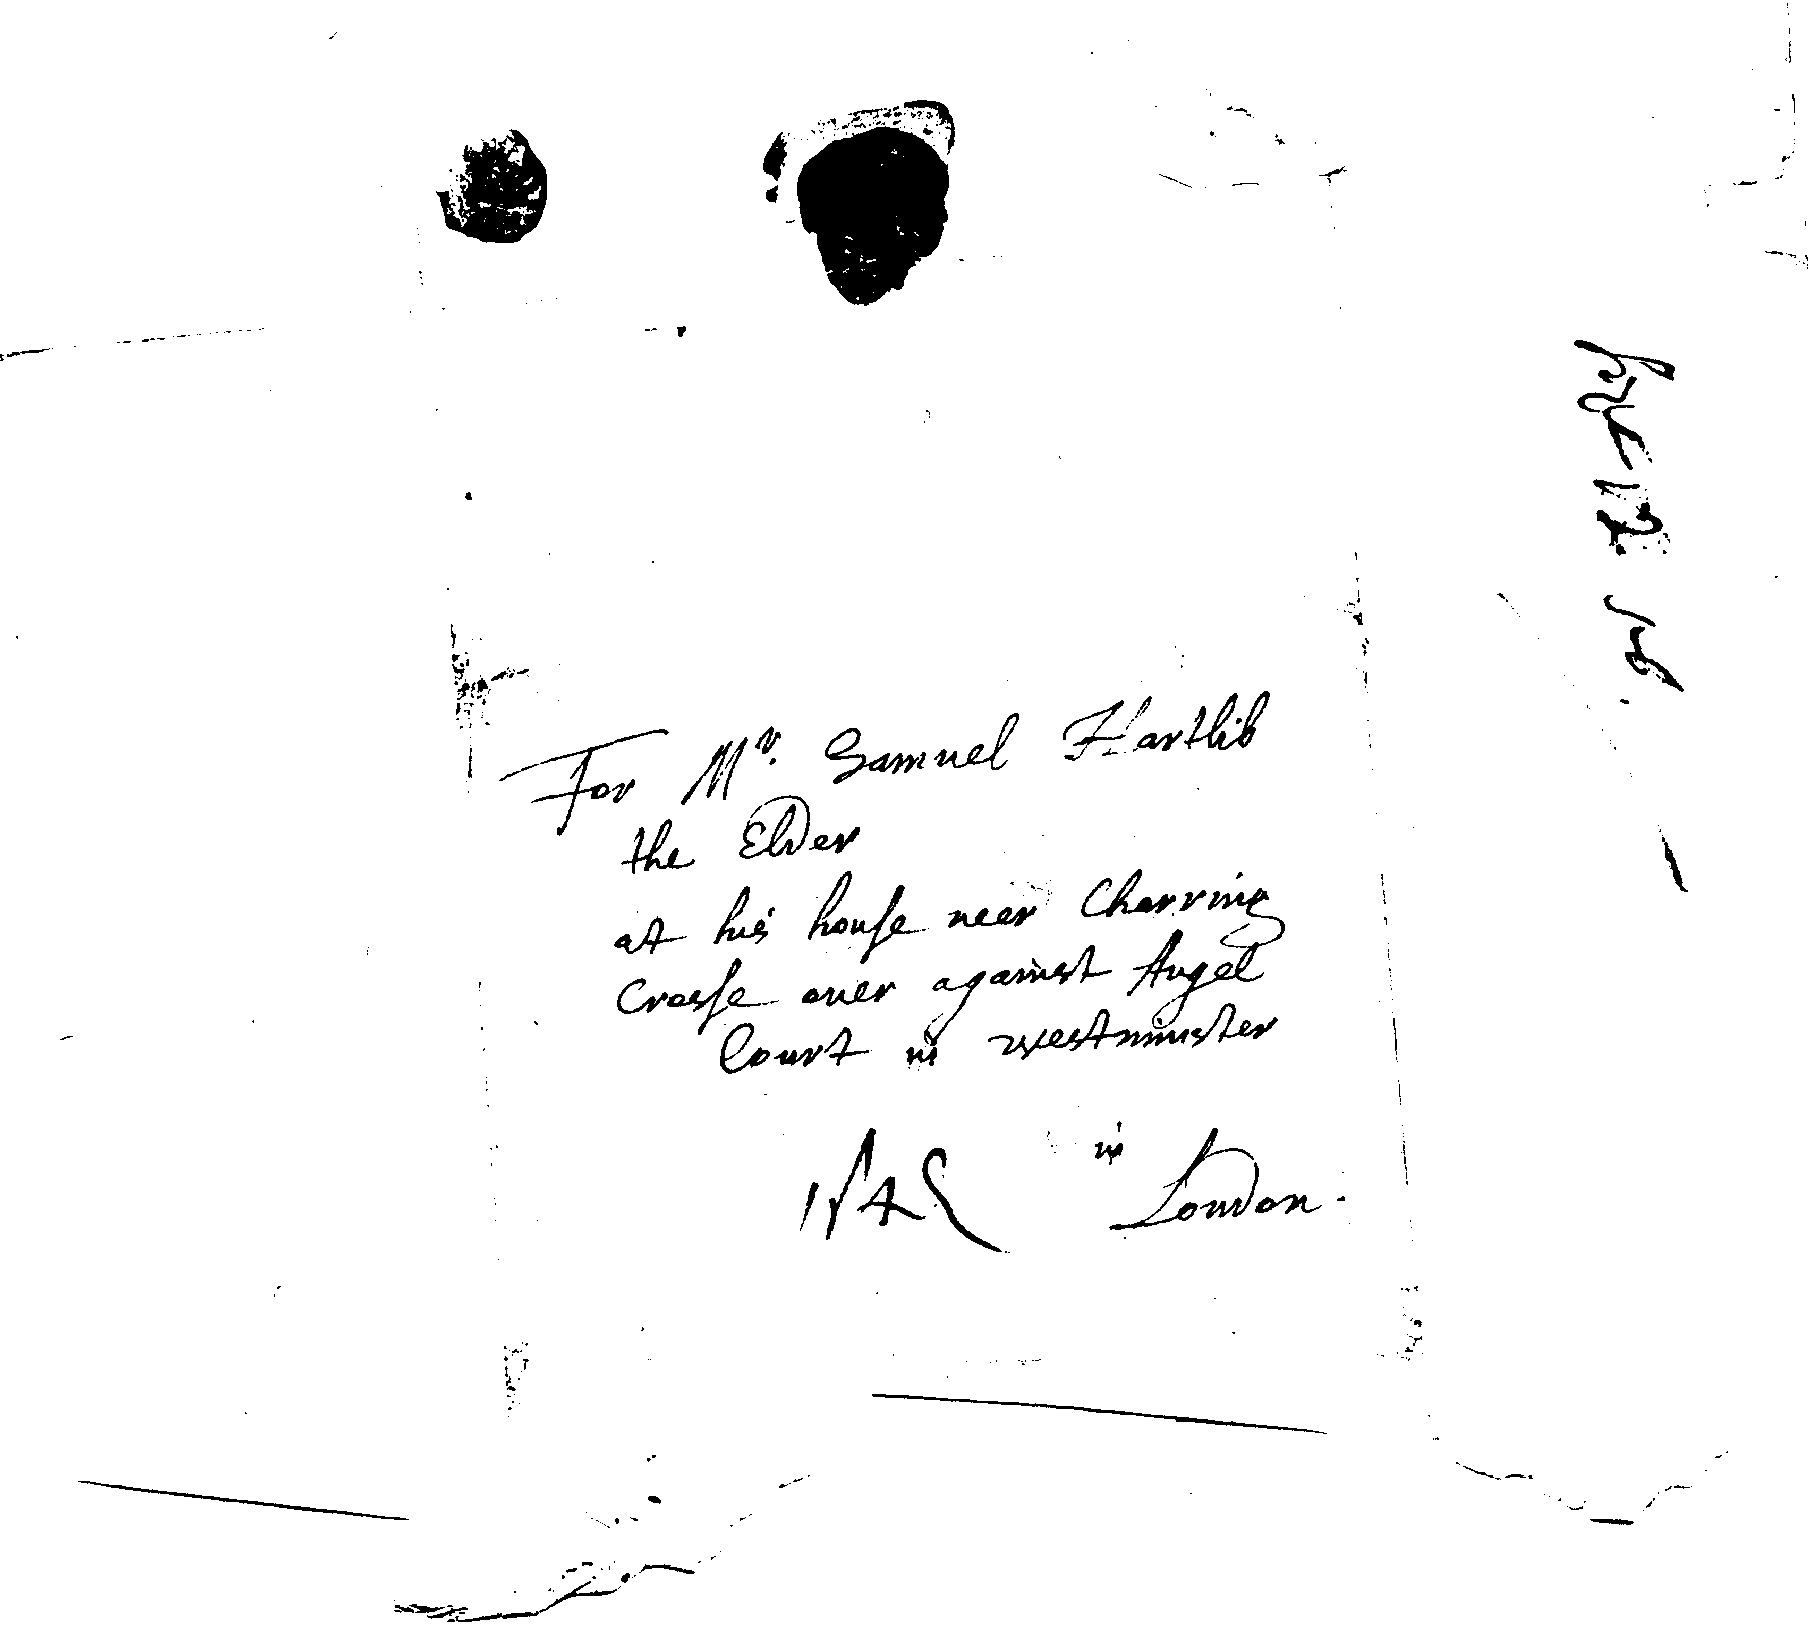 For Mr. Samuel Hartlib
the Elder
at his house neer Charring
Crosse ouer against Angel
Court in Westminster
in
London.